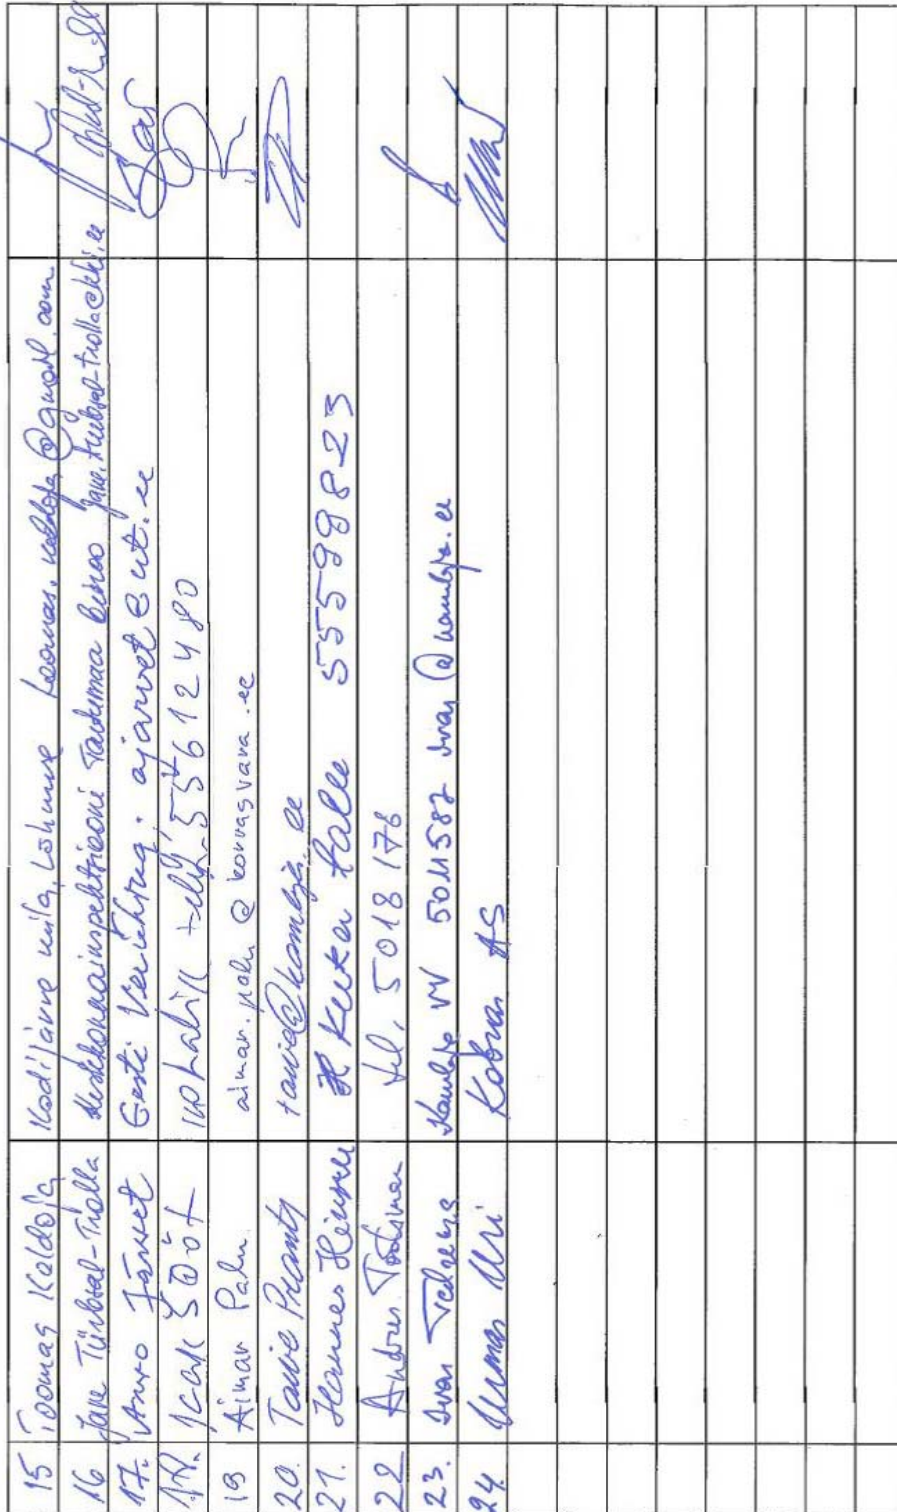 15 Toomas Kaldoja Kodijärve küla, Lõhmuse toomas.kaldoja@gmail.com
16 Jane Türbsal-Trolla Keskkonnainspektsiooni Tartumaa büroo
17. Arvo Järvet Eesti Veeühing. ajarvet@ut.ee
18. Jaak Sööt kohalik 55612480
19 Aimar Palu aimar.palu@ .ee
20. Taivo Prants taivo@kambja.ee
21. Hannes talle 55598823
22 Andrus tel. 5018176
23. Ivan Kambja VV 5011582 ivan@kambja.ee
24. Urmas Uri Kobras AS